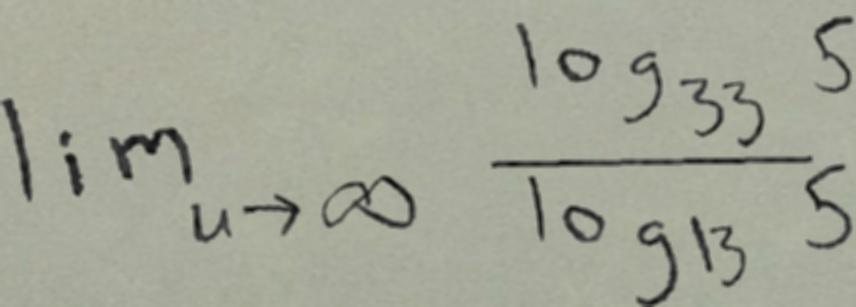 \lim_{u \to \infty} \frac{\log_{33} 5}{\log_{13} 5}